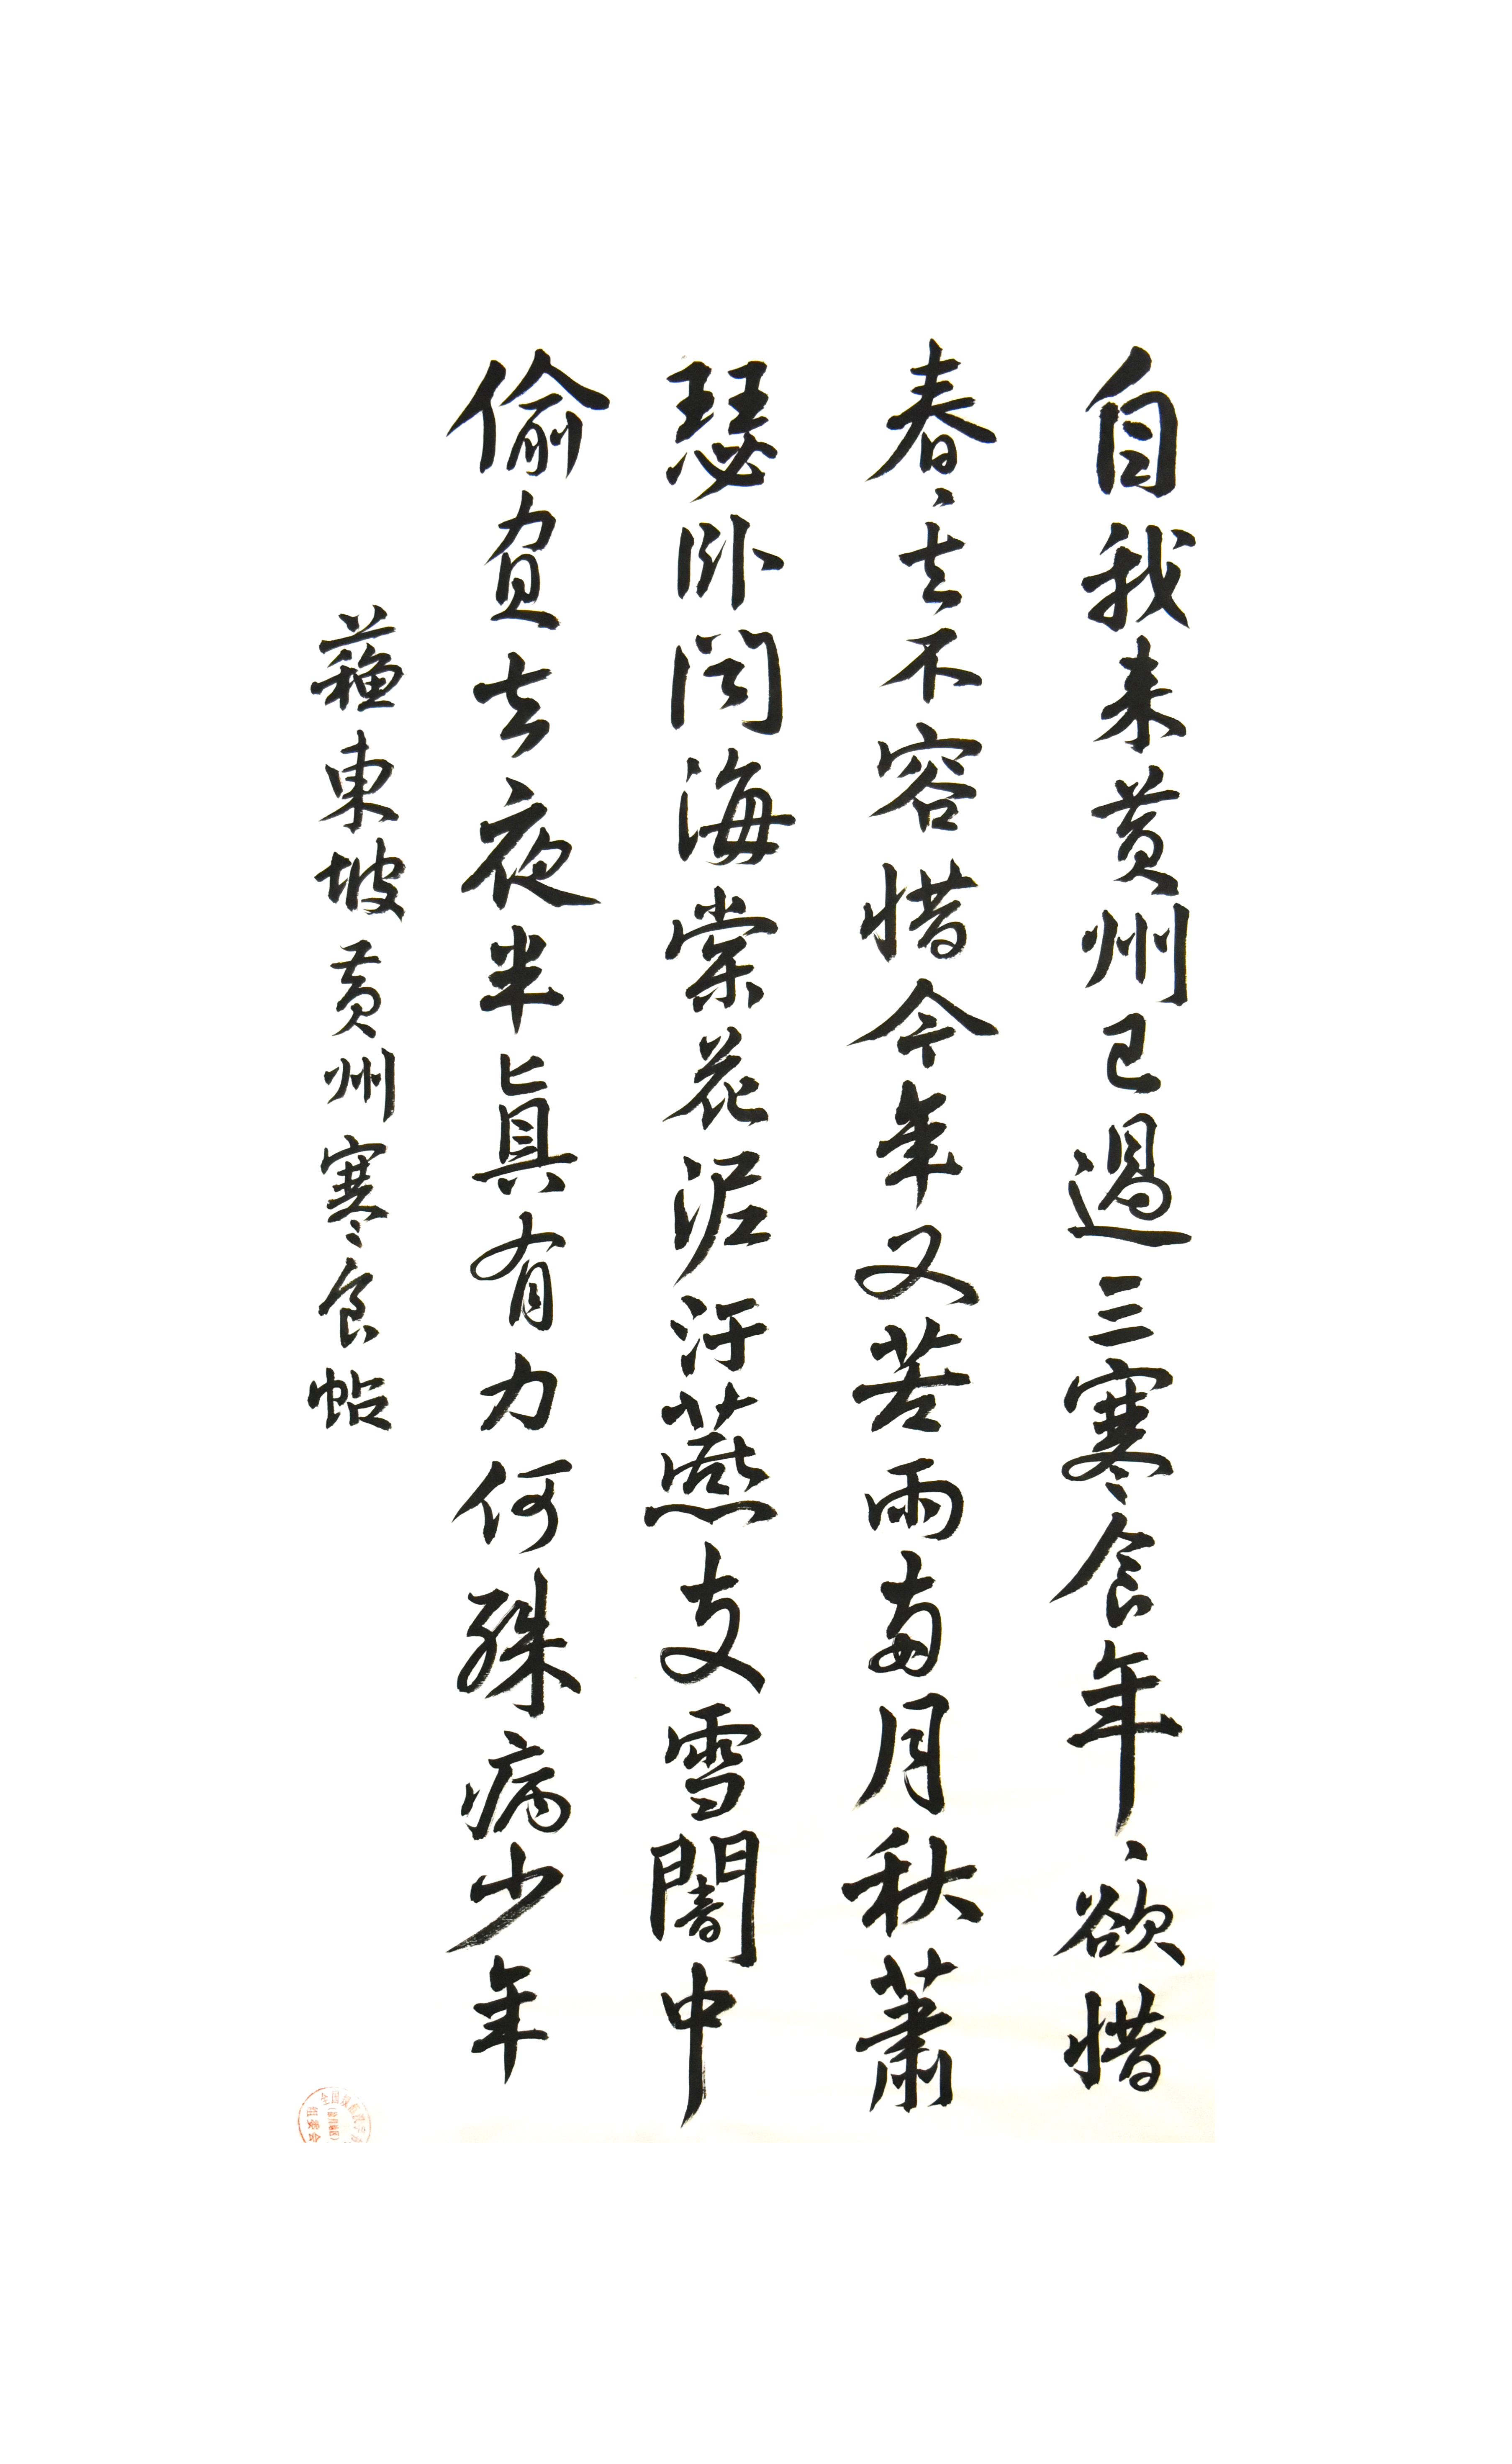 自我来黄州已過三寒食年々欲惜
春々去不容惜今年又苦雨兩月秋蕭
瑟卧闻海棠花泥汙燕支雪闇中
偷負去夜半真有力何殊病少年
蘇東坡黄州寒食帖
組委会